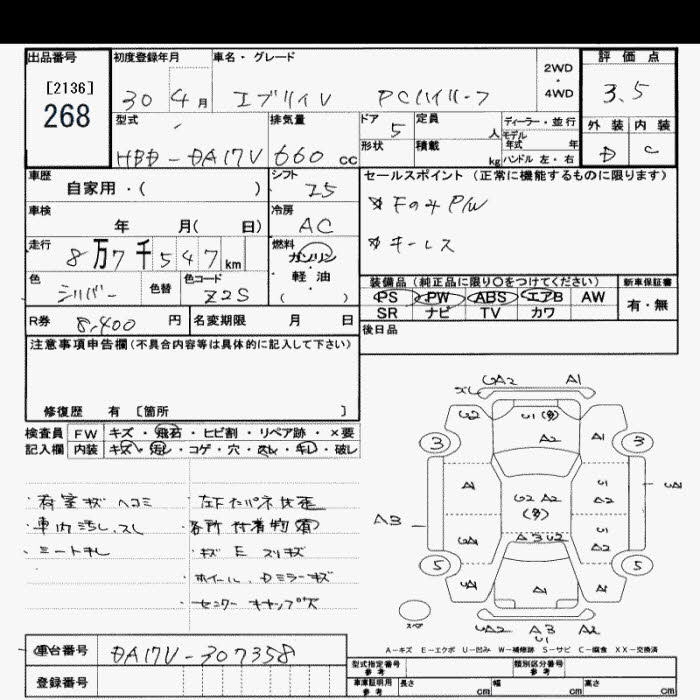 出品番号 初度登録年月 車名・グレード 2WD・4WD 評価点
[2136]
268
30 4月 エブリイV PCハイルーフ 3.5
型式 排気量 ドア 定員 人 ディーラー・並行 外装 内装
HBD-DA17V 660 cc 5 モデル年式 年 D C
形状 積載 kg ハンドル 左・右
車歴 シフト セールスポイント(正常に機能するものに限ります)
自家用・( ) I5
車検 冷房 Fのみ P/W
年 月( 日) AC
走行 燃料 キーレス
8万7千547km ガソリン・軽油( )
色 色替 色コード 装備品(純正品に限り〇をつけてください) 新車保証書
シルバー Z2S PS PW ABS エアB AW 有・無
SR ナビ TV カワ
R券 8,400円 名変期限 月 日 後日品
注意事項申告欄(不具合内容等は具体的に記入して下さい)
修復歴 有 〔箇所 〕
検査員 FW キズ・飛石・ヒビ割・リペア跡・×要
記入欄 内装 キズ・汚し・コゲ・穴・スレ・キレ・破レ
・荷室キズ ヘコミ
・車内汚し、スレ
・シートキレ
・各所付着物有
・キズ E スリキズ
・ホイール、Dミラーキズ
・センターキャップ欠
UA2 A1
U2 U1(多)
A2 A1
3 3
A1 U1 A2
U2 A2 (多)
A3 U1 A2
UA1 A3U2
5 5
UA1 A1 A1
スペア UA2 A3 U1 A2
A-キズ E-エクボ U-凹み W-補修跡 S-サビ C-腐食 XX-交換済
車台番号 DA17V-307358
登録番号
型式指定番号 参考 類別区分番号 参考
車庫証明用 参考 長さ cm 幅 cm 高さ cm